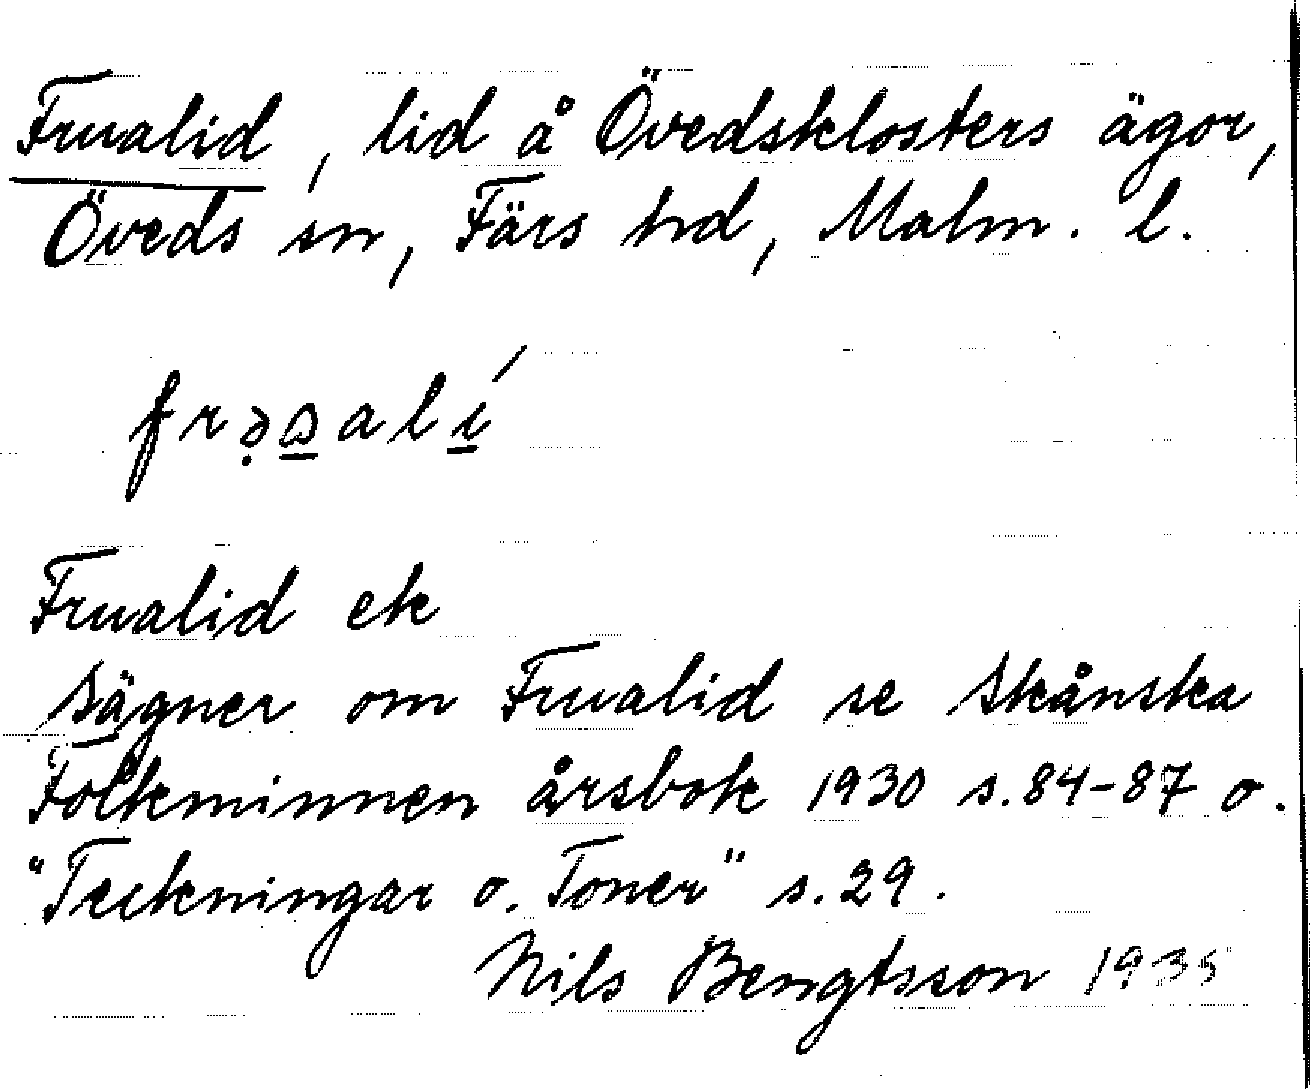 Frualid, lid å Övedsklosters ägor,
Öveds sn, Färs hd, Malm. l.
Frualid ek
Sägner om Frualid se Skånska
Folkminnen årsbok 1930 s. 84-87 o.
"Teckningar o. Toner" s. 29.
Nils Bengtsson 1935